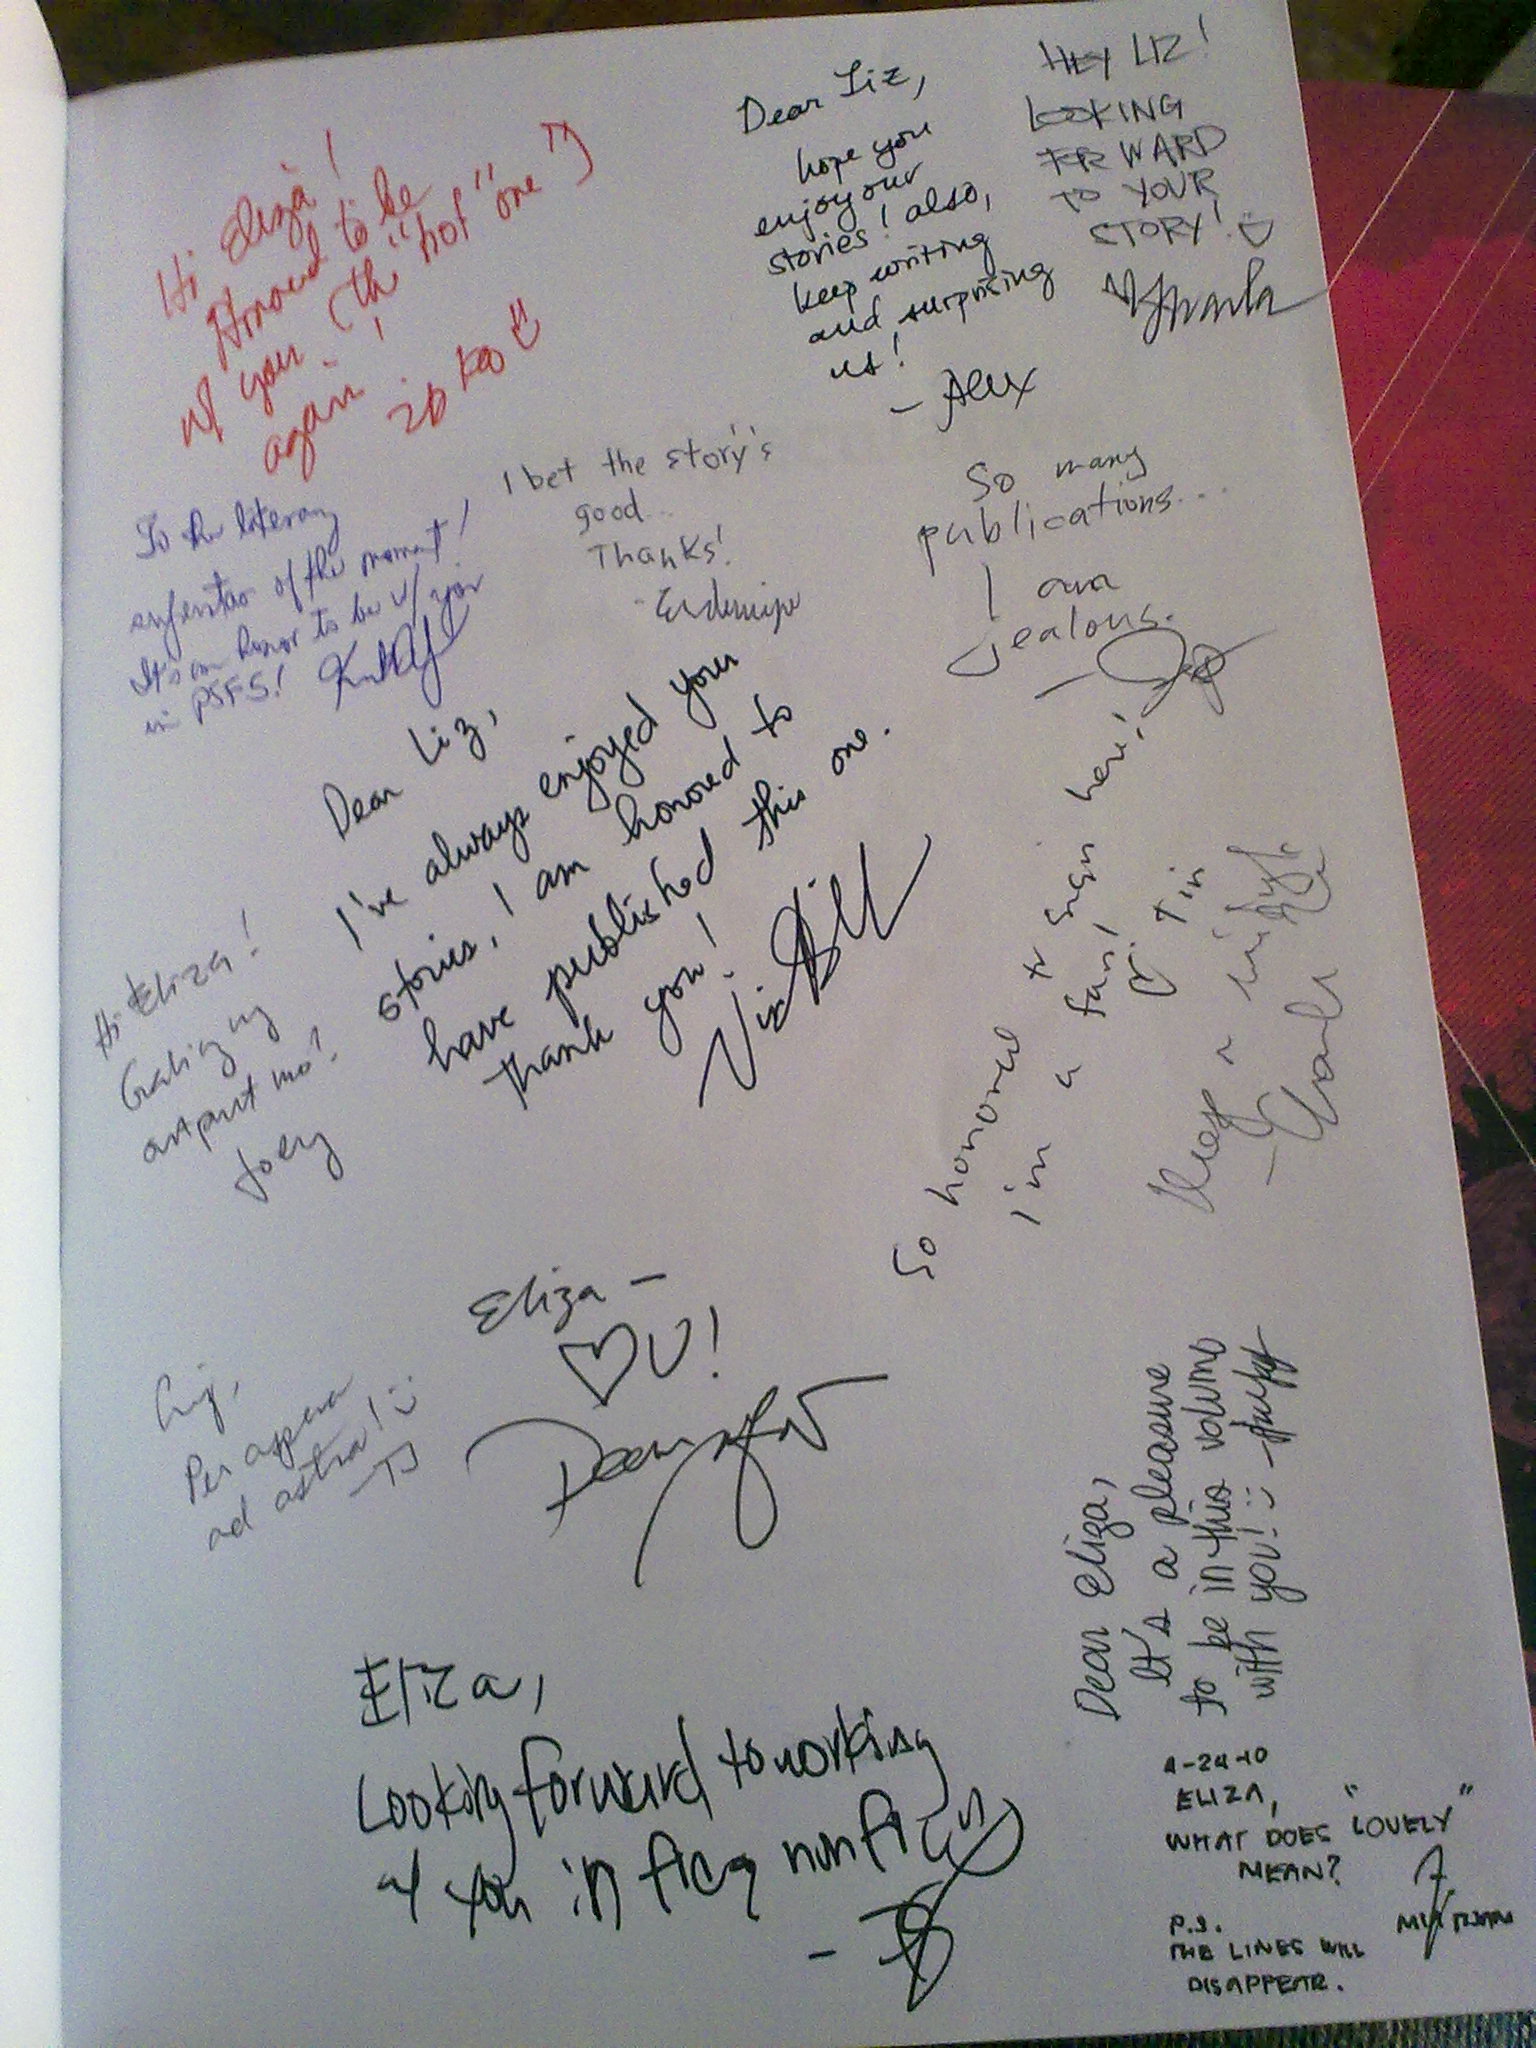 Hi Eliza!
Honored to be
w/ you (the "hot" one")
again!
Dear Liz,
hope you
enjoy our
stories! also,
keep writing
and surprising
us!
- Alex
HEY LIZ!
LOOKING
FORWARD
TO YOUR
STORY!
To the literary
of the moment!
It's an honor to be w/ you
in PSFS!
I bet the story's
good...
Thanks!
So many
publications...
I am
jealous.
Dear Liz,
I've always enjoyed your
stories, I am honored to
have published this one.
Thank you!
Hi Eliza!
Galing ng
output mo!
Joey
So honored to sign here!
I'm a fan!
♡ Tin
- Charles
Eliza -
♡ U!
Liz,
Per aspera
ad astra! :)
- TJ
Dear Eliza,
It's a pleasure
to be in this volume
with you! :)
Eliza,
Looking forward to working
w/ you in fic & nonfic
4-24-10
ELIZA,
WHAT DOES "LOVELY"
MEAN?
P.S.
THE LINES WILL
DISAPPEAR.